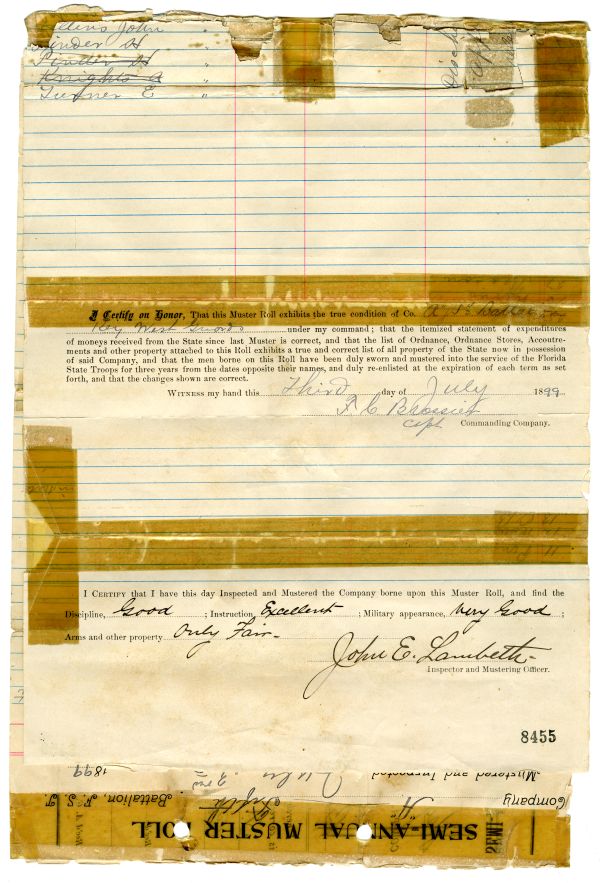 John "
Pinder H "
Pinder H "
Knights A "
Turner E "
I Certify on Honor, That this Muster Roll exhibits the true condition of Co. A, 5th Battalion
Key West Guards under my command; that the itemized statement of expenditures
of moneys received from the State since last Muster is correct, and that the list of Ordnance, Ordnance Stores, Accoutre-
ments and other property attached to this Roll exhibits a true and correct list of all property of the State now in possession
of said Company, and that the men borne on this Roll have been duly sworn and mustered into the service of the Florida
State Troops for three years from the dates opposite their names, and duly re-enlisted at the expiration of each term as set
forth, and that the changes shown are correct.
WITNESS my hand this Third day of July 1899
F. C. Brossier
Capt Commanding Company.
I CERTIFY that I have this day Inspected and Mustered the Company borne upon this Muster Roll, and find the
Discipline, Good ; Instruction, Excellent ; Military appearance, Very Good ;
Arms and other property Only Fair.
John E. Lambeth.
Inspector and Mustering Officer.
8455
Mustered and Inspected July 3rd 1899
Company A Fifth Battalion, F. S. T.
SEMI-ANNUAL MUSTER ROLL